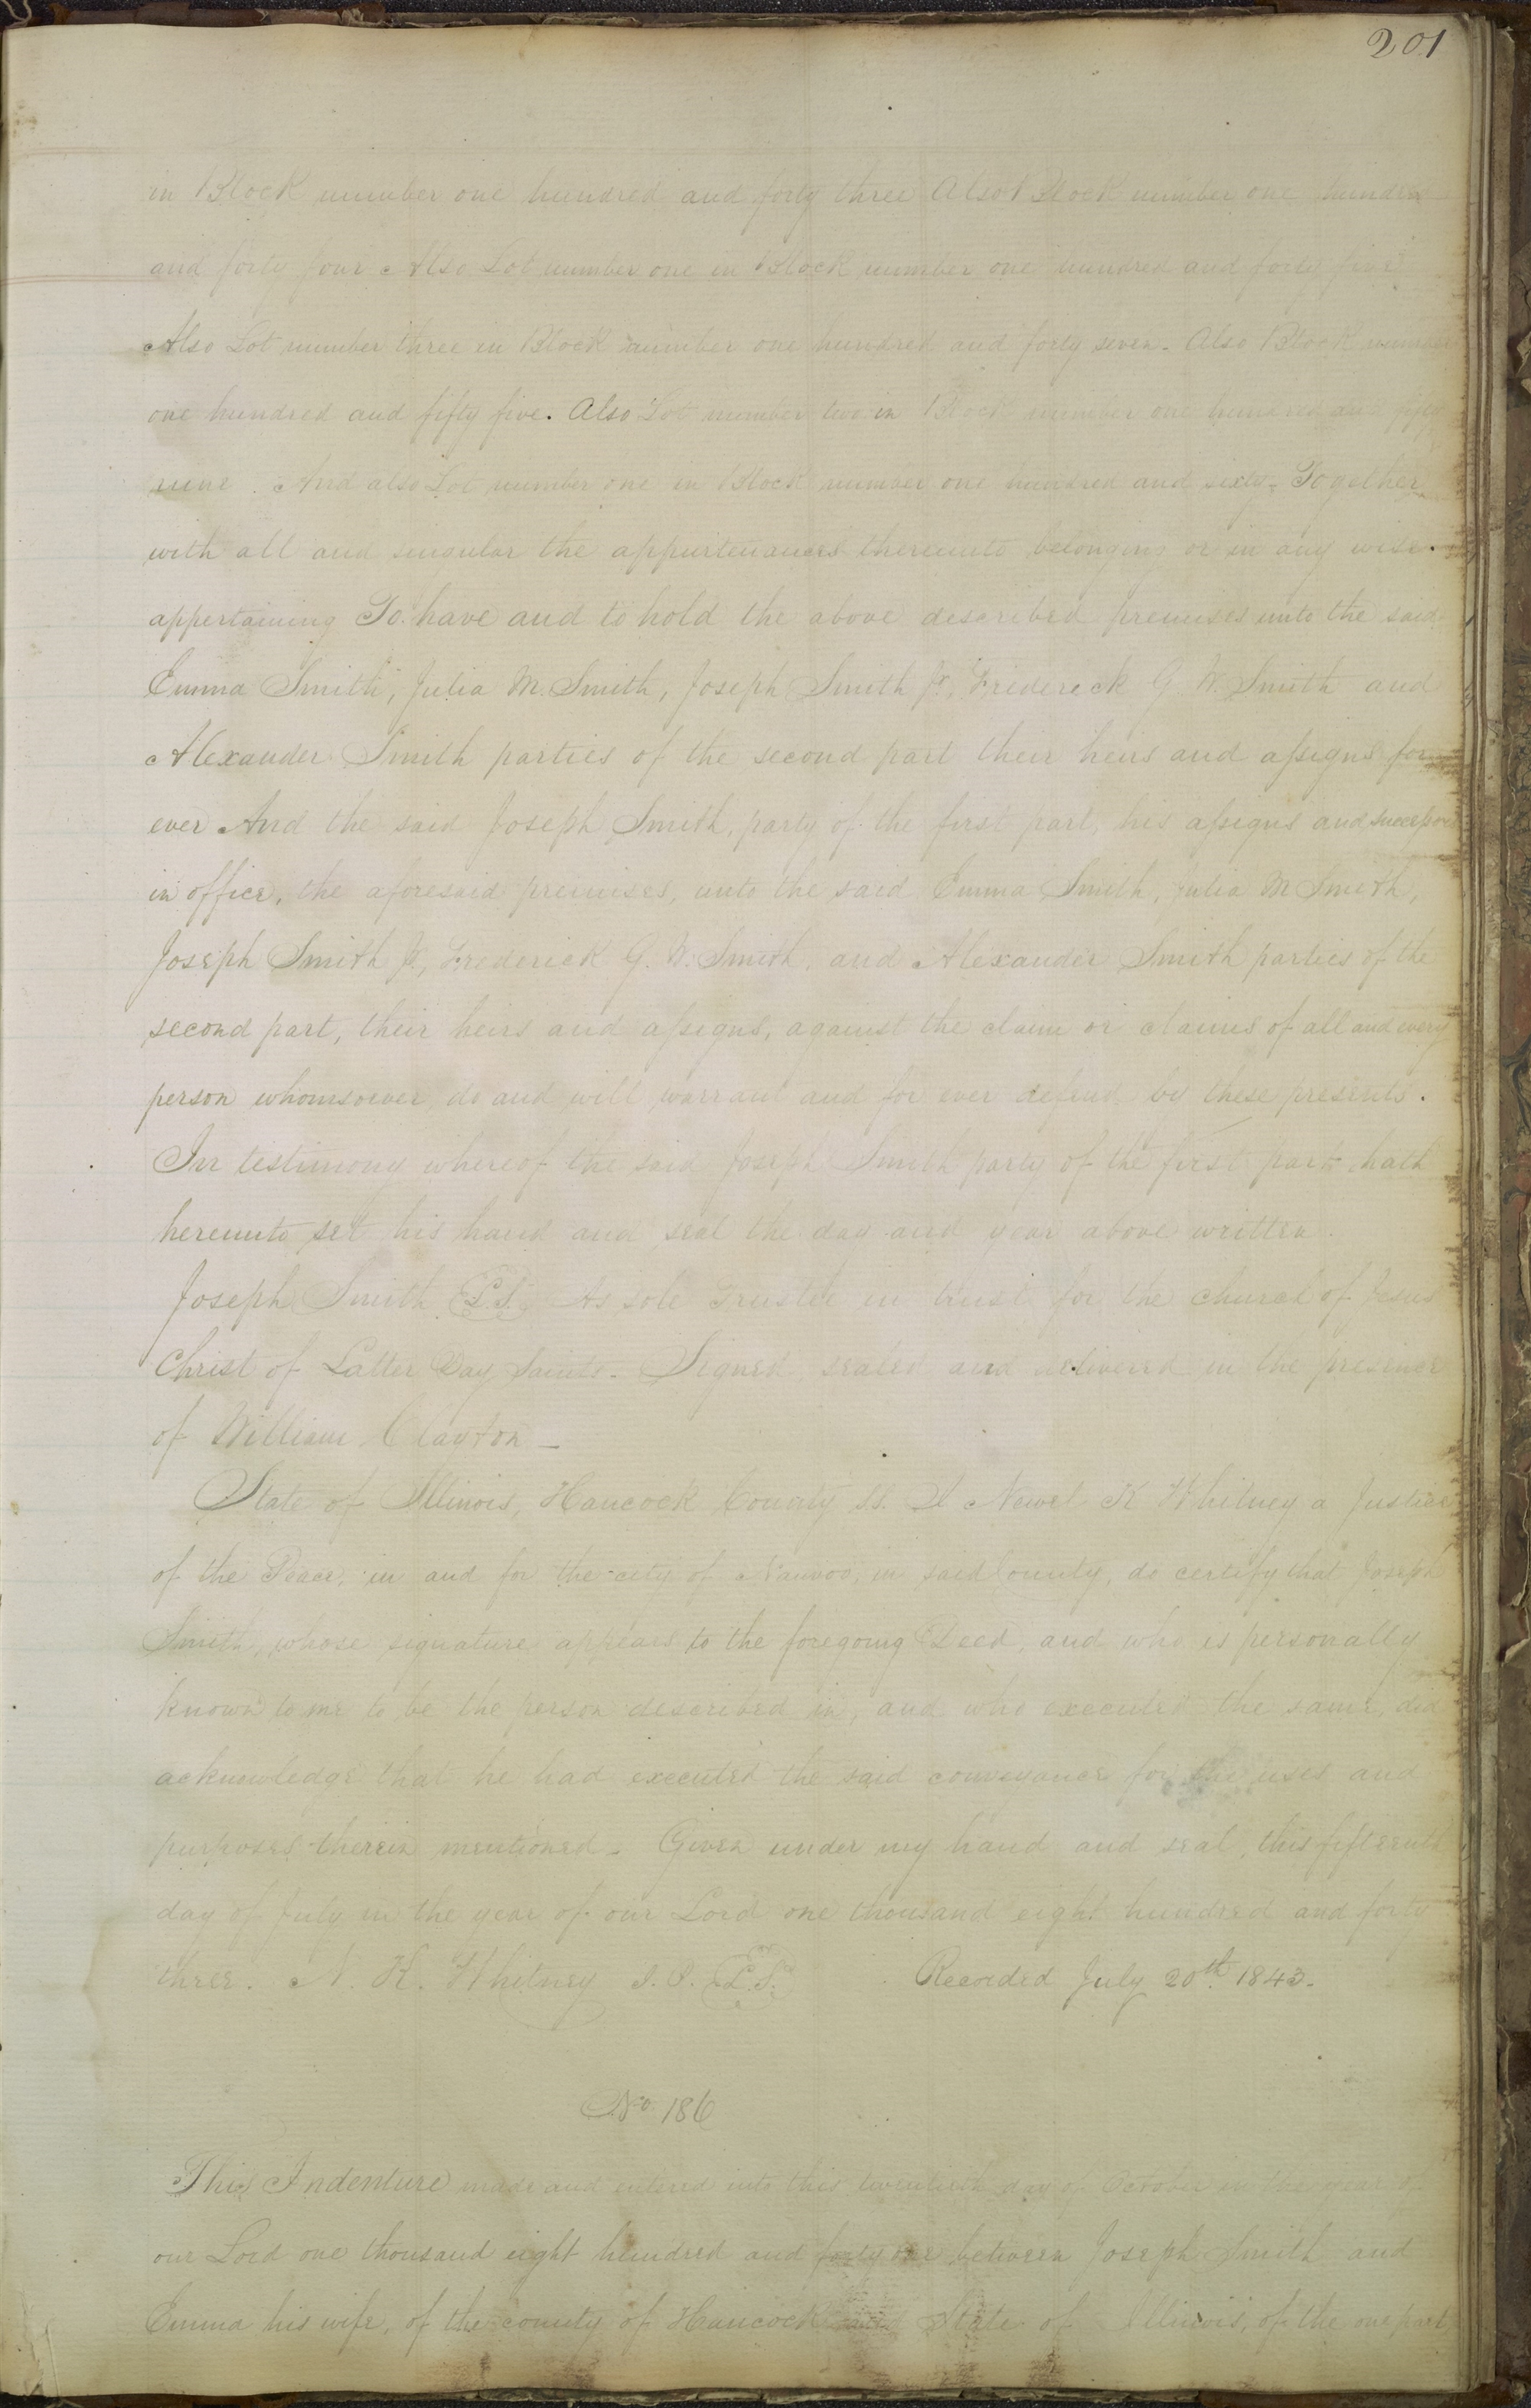 201
in Block number one hundred and forty three Also Block number one hundred
and forty four Also Lot number one in Block number one hundred and forty five
Also Lot number three in Block number one hundred and forty seven. Also Block number
one hundred and fifty five. Also Lot number two in Block number one hundred and fifty
nine. And also Lot number one in Block number one hundred and sixty. Together
with all and singular the appurtenances thereunto belonging or in any wise
appertaining To have and to hold the above described premises unto the said
Emma Smith, Julia M. Smith, Joseph Smith Jr, Fridereck G. W. Smith and
Alexander Smith parties of the second part their heirs and assigns for
ever And the said Joseph Smith, party of the first part, his assigns and successors
in office, the aforesaid premises, unto the said Emma Smith, Julia M Smith,
Joseph Smith Jr, Frederick G. W. Smith, and Alexander Smith parties of the
second part, their heirs and assigns, against the claim or claims of all and every
person whomsoever, do and will warrant and for ever defend by these presents.
In testimony whereof the said Joseph Smith party of the first part hath
hereunto set his hand and seal the day and year above written.
Joseph Smith L.S. As sole Trustee in trust for the church of Jesus
Christ of Latter Day Saints. Signed, sealed and delivered in the presence
of William Clayton —
State of Illinois, Hancock County ss. I Newel K Whitney a Justice
of the Peace, in and for the city of Nauvoo, in said County, do certify that Joseph
Smith, whose signature appears to the foregoing Deed, and who is personally
known to me to be the person described in, and who executed the same, did
acknowledge that he had executed the said conveyance for the uses and
purposes therein mentioned. Given under my hand and seal, this fifteenth
day of July in the year of our Lord one thousand eight hundred and forty
three. N. K. Whitney J.P. L.S. Recorded July 20th 1843.
No 186
This Indenture made and entered into this twentieth day of October in the year of
our Lord one thousand eight hundred and forty one between Joseph Smith and
Emma his wife, of the county of Hancock and State of Illinois, of the one part